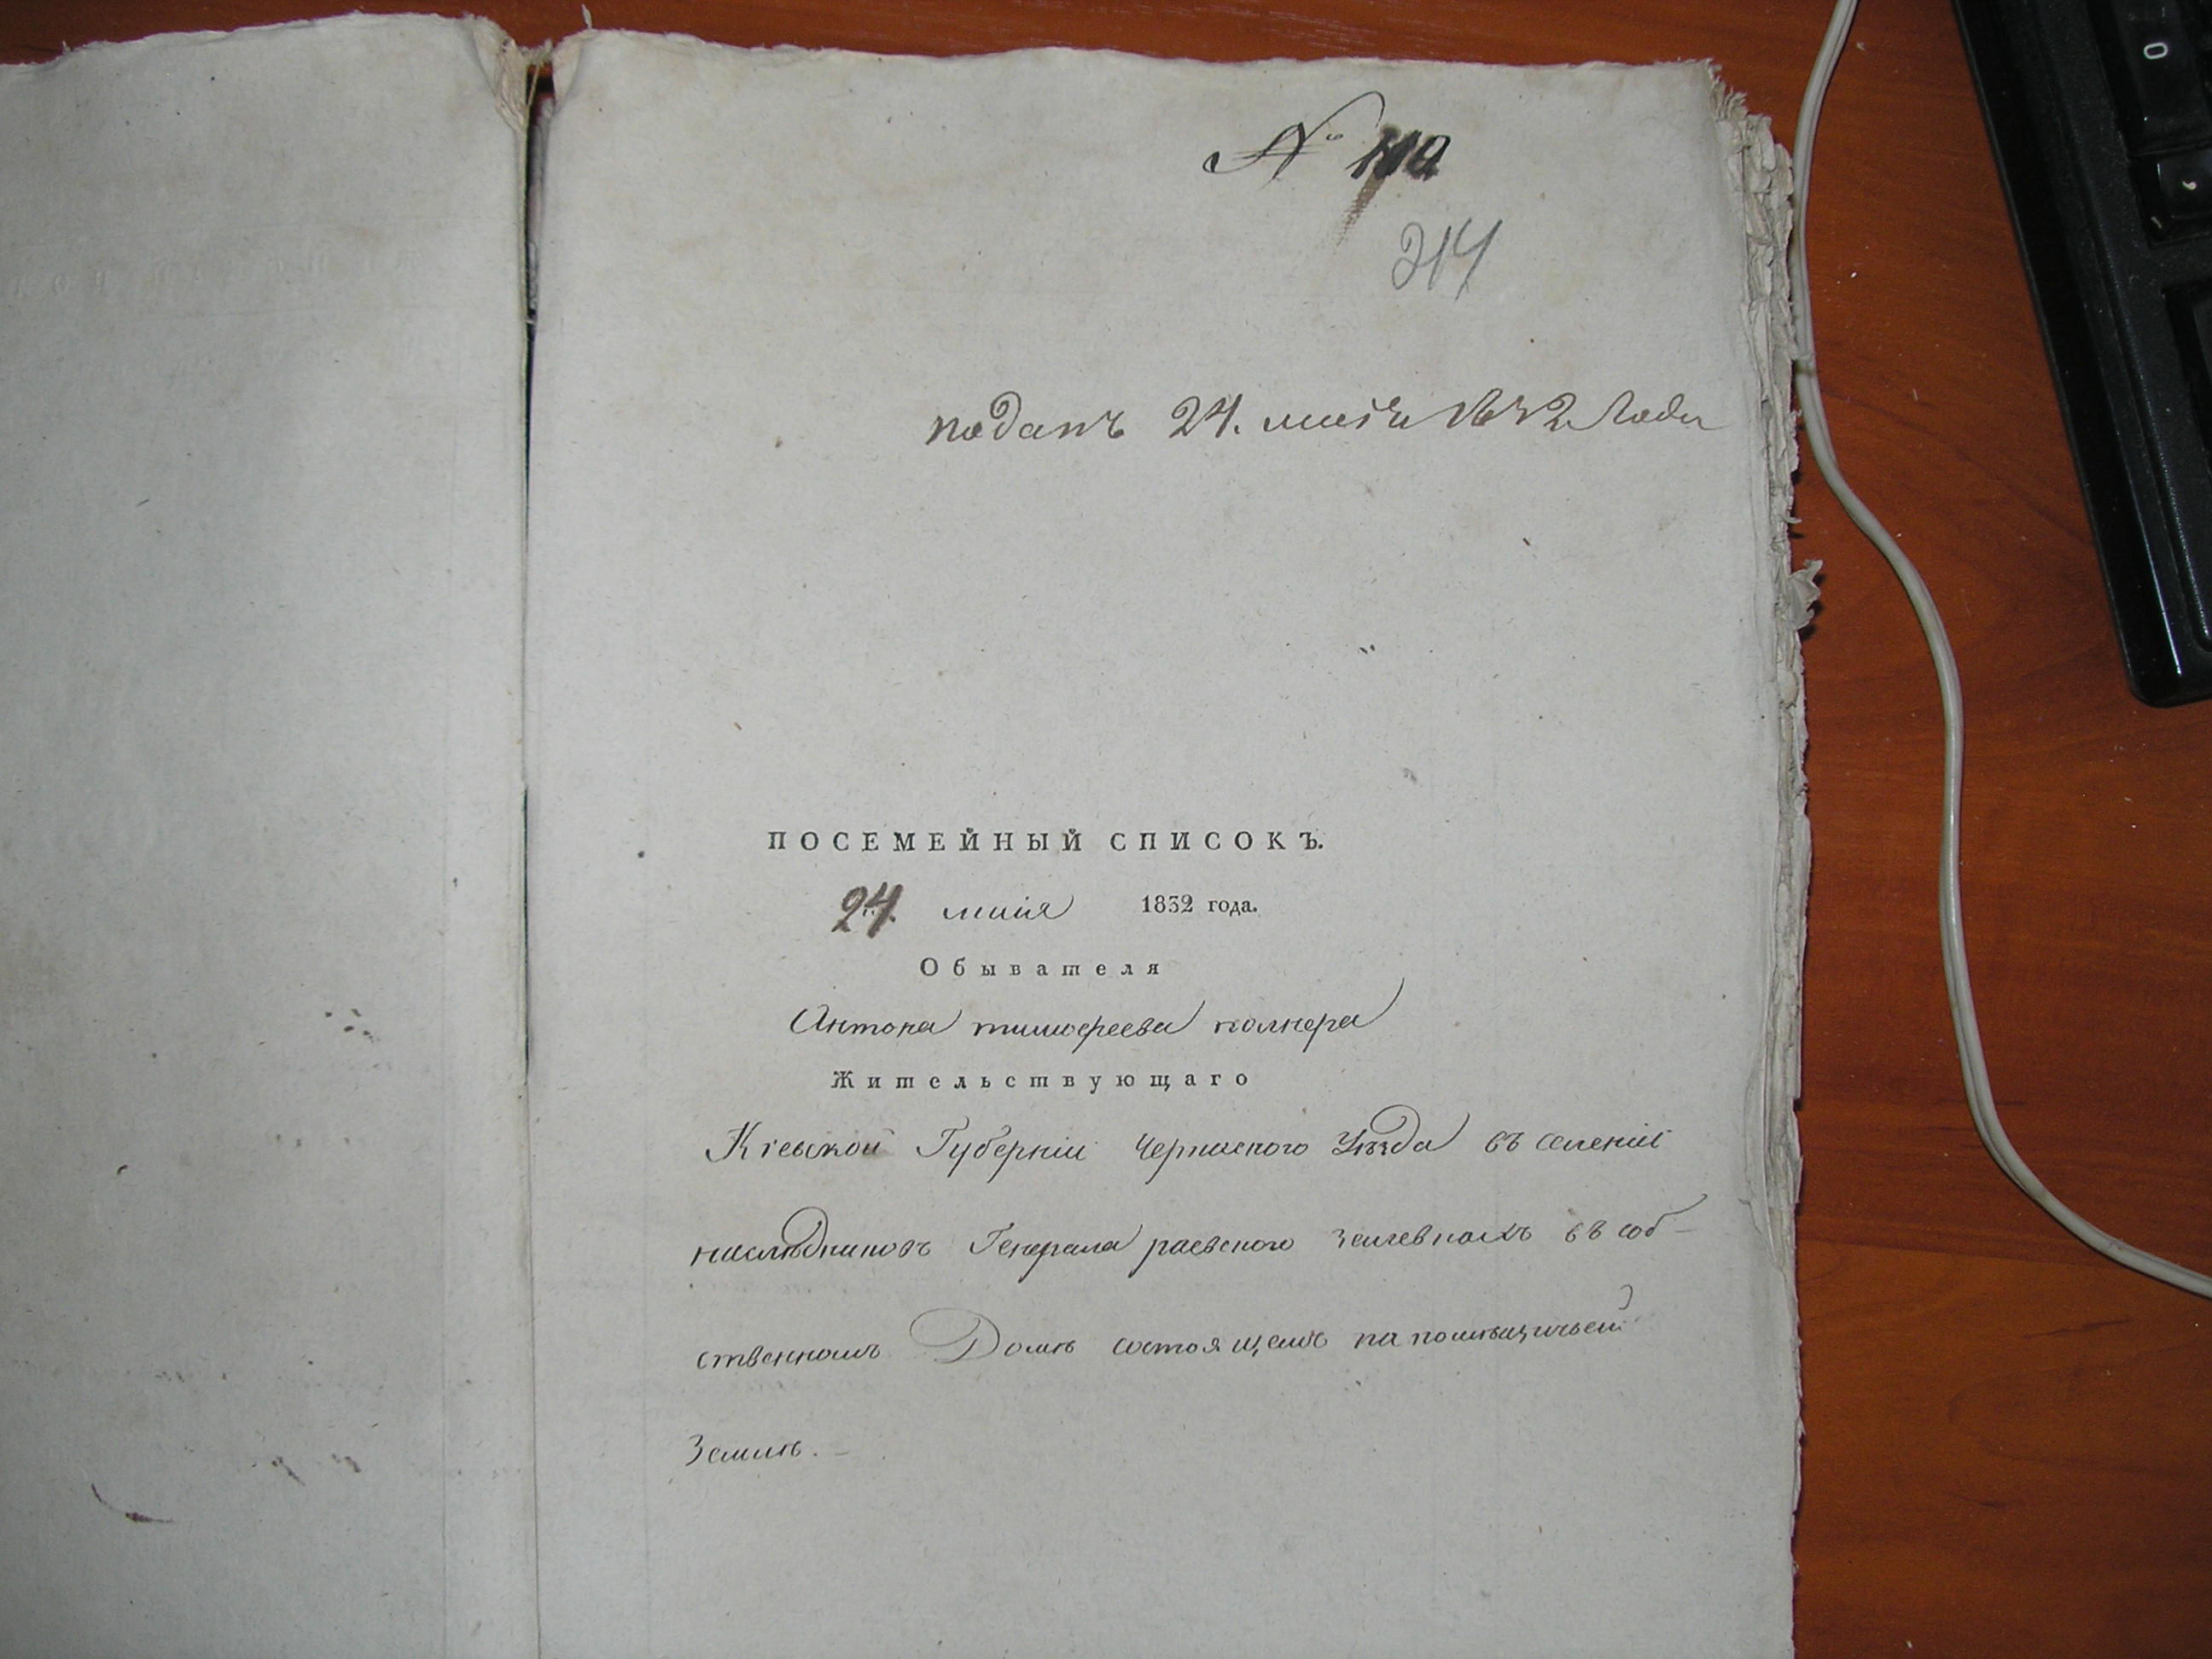 №
314
поданъ 24. маія 1832 года
ПОСЕМЕЙНЫЙ СПИСОКЪ.
24. маія 1832 года.
Обывателя
Антона тимофеева колнера
Жительствующаго
Кіевской Губерніи Черкаского Уѣзда въ селеніи
наслѣдниковъ Генерала раевского въ соб-
ственномъ Домѣ состоящемъ на помѣщичьей
Землѣ. –
0